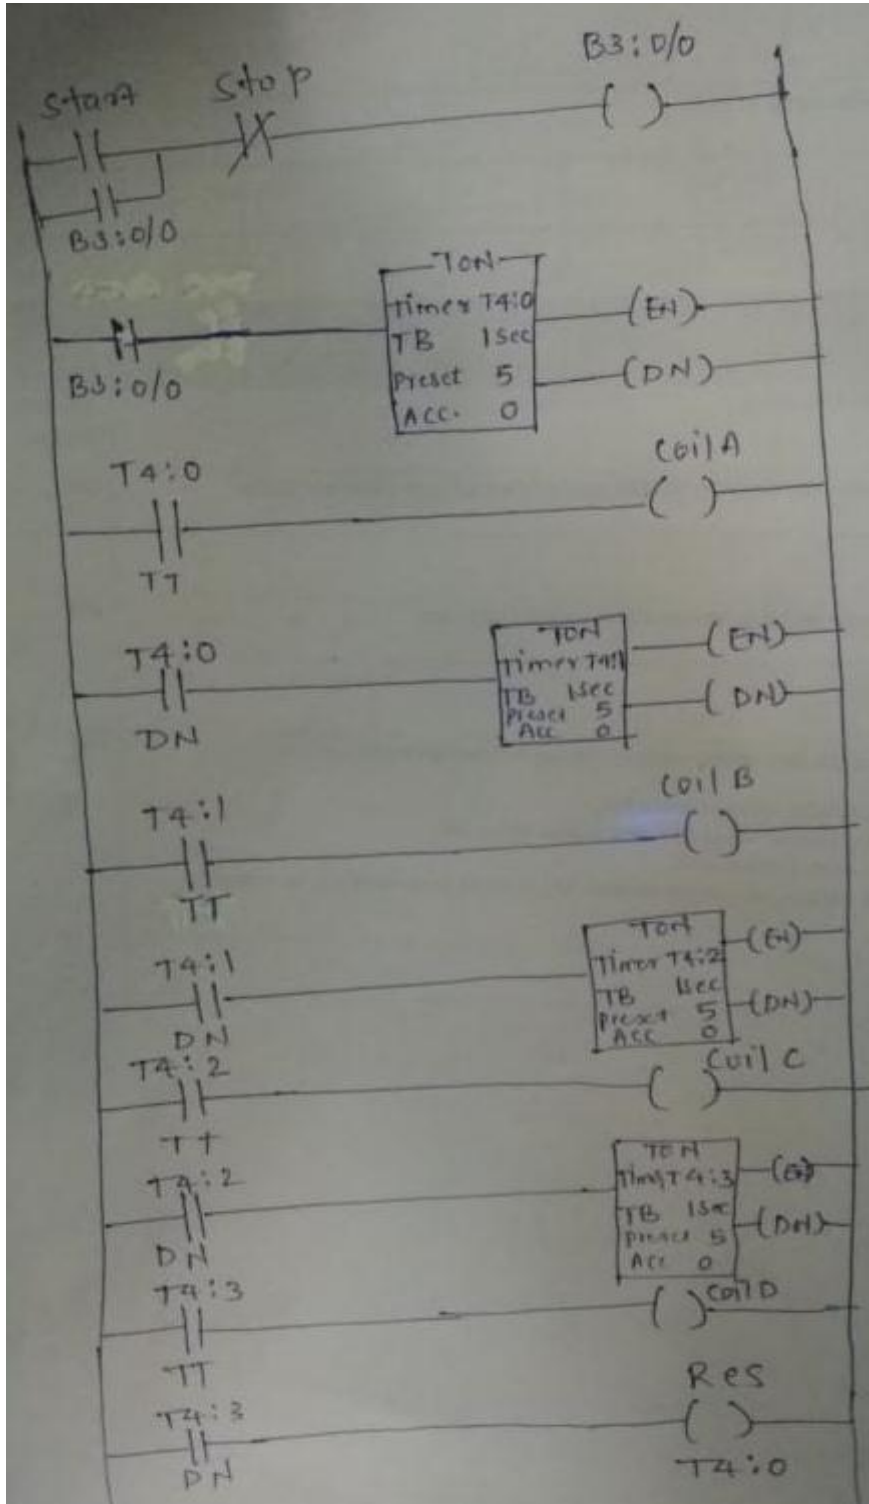 B3:0/0
Start Stop
B3:0/0
TON
Timer T4:0
TB 1sec
Preset 5
ACC. 0
(EN)
(DN)
B3:0/0
Coil A
T4:0
TT
T4:0
DN
TON
Timer T4:1
TB 1sec
Preset 5
Acc 0
(EN)
(DN)
Coil B
T4:1
TT
T4:1
DN
TON
Timer T4:2
TB 1sec
Preset 5
Acc 0
(EN)
(DN)
T4:2
Coil C
TT
T4:2
DN
TON
Tim T4:3
TB 1sec
Preset 5
Acc 0
(EN)
(DN)
T4:3
Coil D
TT
T4:3
DN
Res
T4:0